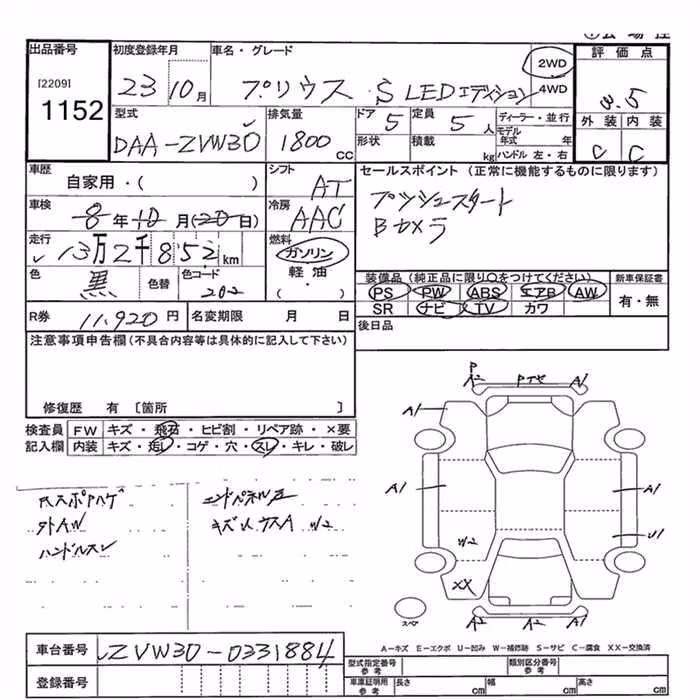 出品番号 初度登録年月 車名・グレード 2WD 評価点
[2209] 23 10月 プリウス S LEDエディション 4WD 3.5
1152
型式 排気量 ドア 5 定員 5人 ディーラー・並行 外装 内装
DAA-ZVW30 1800CC 形状 積載 kg モデル年式 年 ハンドル 左・右 C C
車歴 シフト セールスポイント (正常に機能するものに限ります)
自家用・( ) AT プッシュスタート
車検 冷房 Bカメラ
8年10月(20日) AAC
走行 燃料
13万2千852km ガソリン
色 黒 色替 色コード 202 軽油・( )
装備品 (純正品に限り○をつけてください) 新車保証書
PS PW ABS エアB AW 有・無
SR ナビ TV カワ
R券 11,920円 名変期限 月 日 後日品
注意事項申告欄(不具合内容等は具体的に記入して下さい)
修復歴 有 〔箇所 〕
検査員 FW キズ・飛石・ヒビ割・リペア跡・×要
記入欄 内装 キズ・汚レ・コゲ・穴・スレ・キレ・破レ
P
A2 A1
A1
A1 A1
W2 U1
XX
スペア A2 A2 A1
外AW
ハンドルスレ
車台番号 ZVW30-0331884
登録番号
A-キズ E-エクボ U-凹み W-補修跡 S-サビ C-腐食 XX-交換済
型式指定番号 参考 類別区分番号 参考
車庫証明用 参考 長さ cm 幅 cm 高さ cm